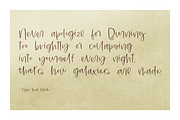 Never apologize for burning
too brightly or collapsing
into yourself every night.
that's how galaxies are made.